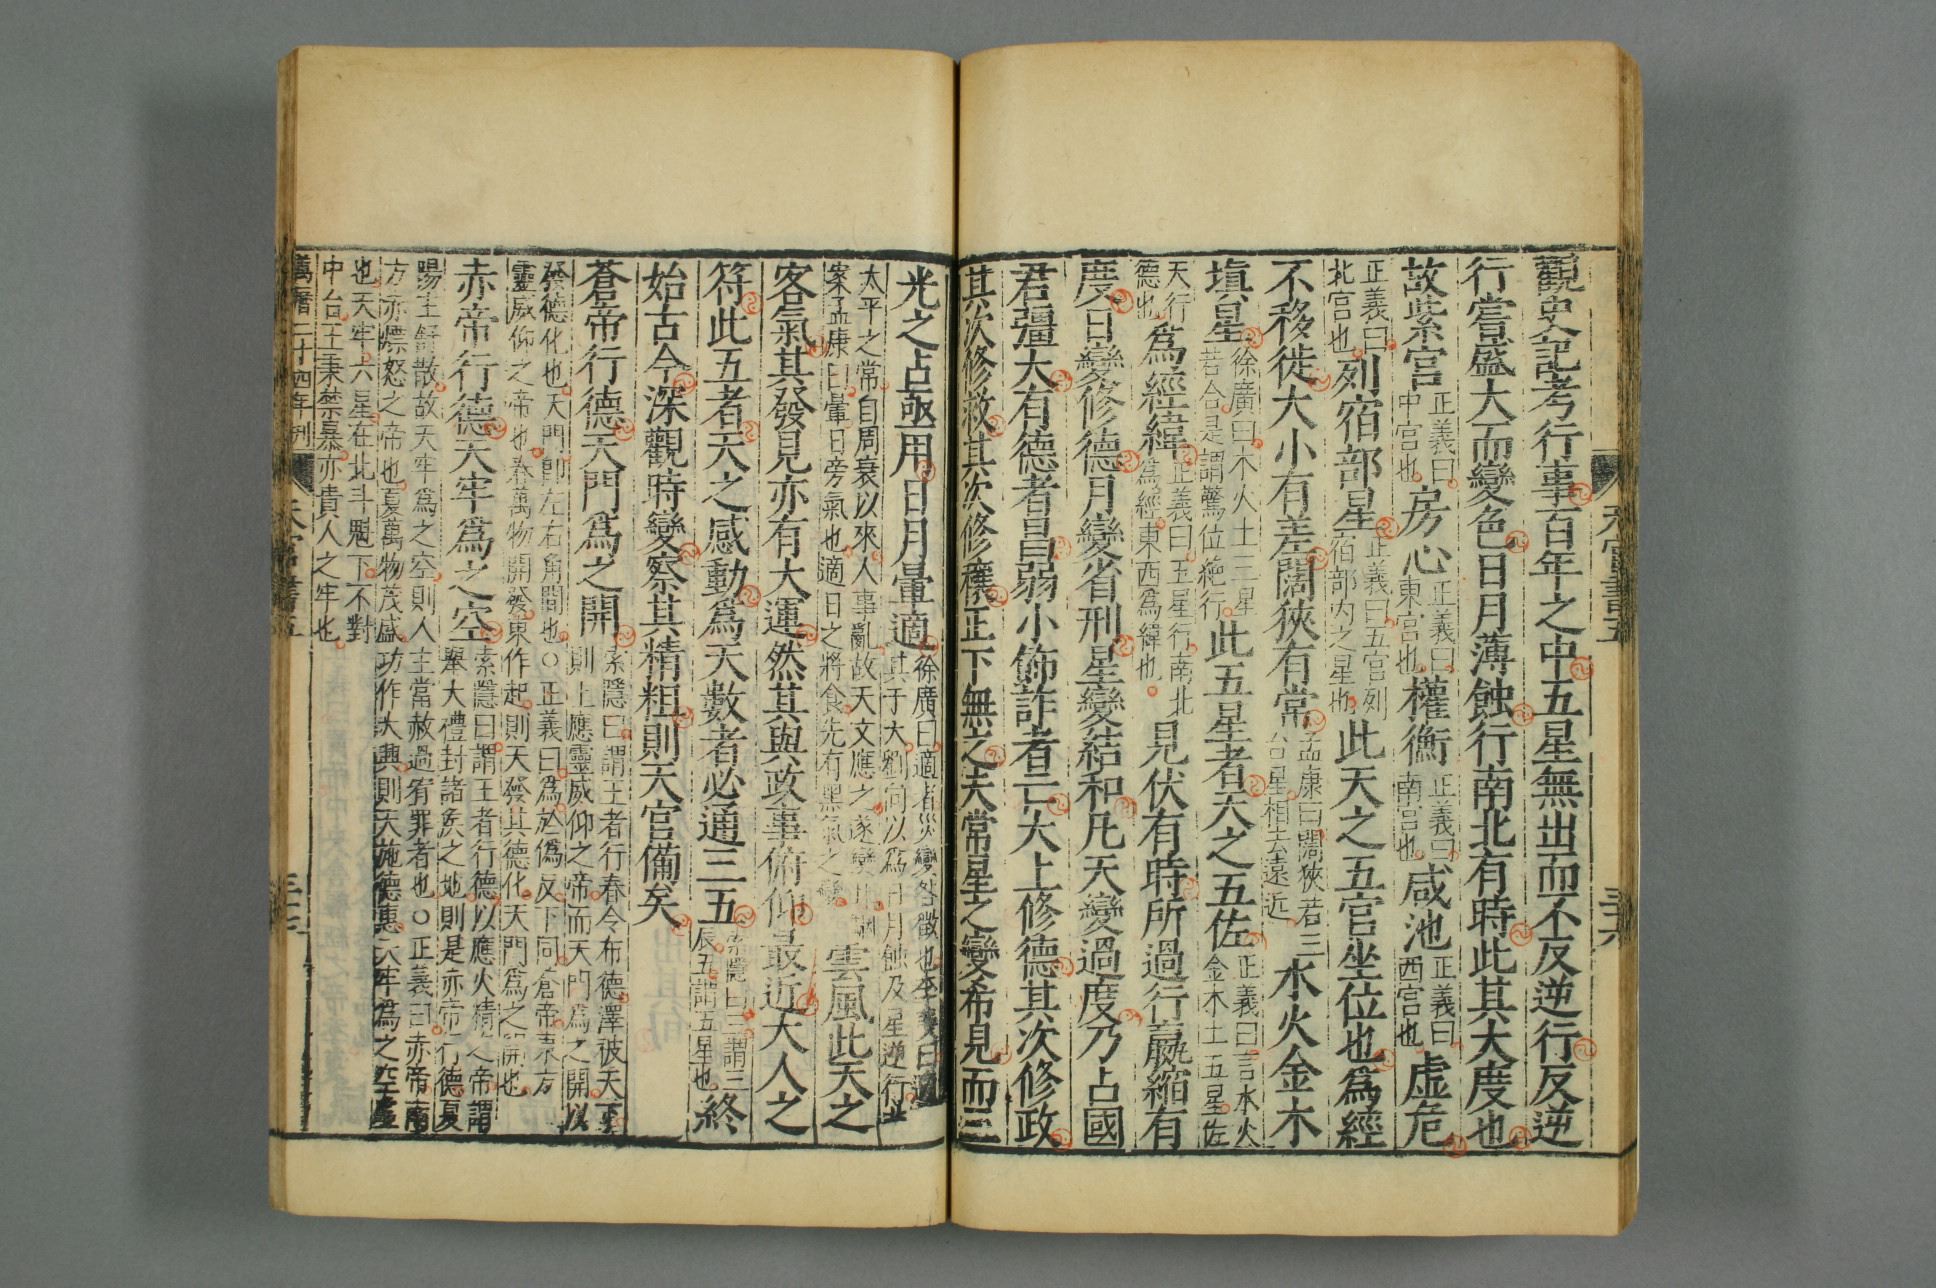 觀史記考行事百年之中五星無出而不反逆行反逆
行嘗盛大而變色日月薄蝕行南北有時此其大度也
故紫宮正義曰中宮也房心正義曰東宮也權衡正義曰南宮也咸池正義曰西宮也虛危
正義曰北宮也列宿部星正義曰五宮列宿部內之星也此天之五官坐位也為經
不移徙大小有差闊狹有常孟康曰闊狹若三台星相去遠近水火金木
填星徐廣曰木火土三星若合是謂驚位絶行此五星者天之五佐正義曰言水火金木土五星佐
天行德也為經緯正義曰五星行南北為經東西為緯也見伏有時所過行贏縮有
度日變修德月變省刑星變結和凡天變過度乃占國
君彊大有德者昌弱小飾詐者亡太上修德其次修政
其次修救其次修禳正下無之夫常星之變希見而三
光之占亟用日月暈適徐廣曰適者災變咎徵也李斐曰適見于天劉向以為日月蝕及星逆行非
太平之常自周衰以來人事亂故天文應之遂變耳駰案孟康曰暈日旁氣也適日之將食先有黑氣之變雲風此天之
客氣其發見亦有大運然其與政事俯仰最近大人之
符此五者天之感動為天數者必通三五索隱曰三謂三辰五謂五星也終
始古今深觀時變察其精粗則天官備矣
蒼帝行德天門為之開索隱曰謂王者行春令布德澤被天下則上應靈威仰之帝而天門為之開以
發德化也天門即左右角間也○正義曰為於偽反下同蒼帝東方靈威仰之帝也春萬物開發東作起則天發其德化天門為之開也
赤帝行德天牢為之空索隱曰謂王者行德以應火精之帝謂舉大禮封諸侯之地則是赤帝行德夏
陽主舒散故天牢為之空則人主當赦過宥罪者也○正義曰赤帝南方赤熛怒之帝也夏萬物茂盛功作大興則天施德惠天牢為之空虛
也天牢六星在北斗魁下不對中台主秉禁暴亦貴人之牢也
萬曆二十四年刊
天官書五
三十七
天官書五
三十六